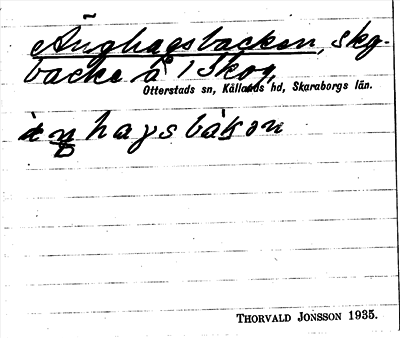 Änghagsbacken, skg.
backe å 1 Skog,
Otterstads sn, Kållands hd, Skaraborgs län.
hagsbakən
THORVALD JONSSON 1935.